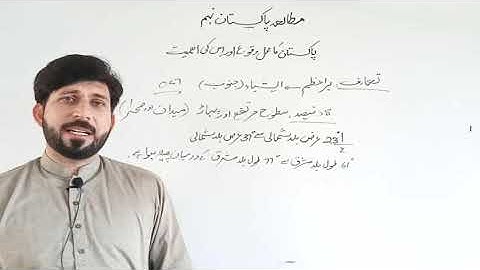 مطالعہ پاکستان نہم
پاکستان کا محل وقوع اور اس کی اہمیت
تعارف براعظم ایشیاء (جنوب)
فیصد سطح مرتفع اور پہاڑ (میدان و صحرا)
23½° عرض بلد شمالی سے 37° عرض بلد شمالی
61° طول بلد مشرق سے 77° طول بلد مشرق کے درمیان پھیلا ہوا ہے۔